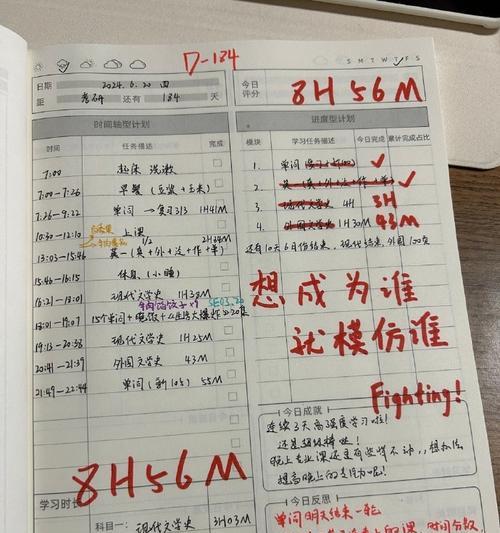 D-184
S M T W T F S
日期 2024.6.20 四
距 考研 还有 184 天
今日评分 8H 56M
时间轴型计划
时间 任务描述 完成
7:00 起床 洗漱
7:00-7:26 早餐(豆浆+玉米)
7:26-9:22 单词→复习313 1H41M
10:30-12:10 上课
1/2 2H34M
13:03-15:46 英一(英+外+次+作+单)
15:46-16:15 休息(小睡)
16:21-18:01 现代文学史 1H38M
18:01-19:07 15个单词+晚饭+
19:13-20:38 现代文学史 1H25M
20:41-21:39 外国文学史 43M
21:49-22:44 单词(新105) 55M
8H56M
学习时长
科目一: 现代文学史 3H03M
进度型计划
模块 学习任务描述 今日完成 累计完成占比
1. 单词 ✓
2. ✓
3. 现代文学史 4H 3H
4. 外国文学史 1H30M 43M
还有10天6月份结束,现代结束,外国100页
想成为谁
就模仿谁
Fighting!
今日成就
连续3天高强度学习啦!
还是超级棒哒!
晚上专业课还是有些学不动,,想办法
提高晚上的专注力呢!
今日反思
单词明天结束一轮
的课,时间分散